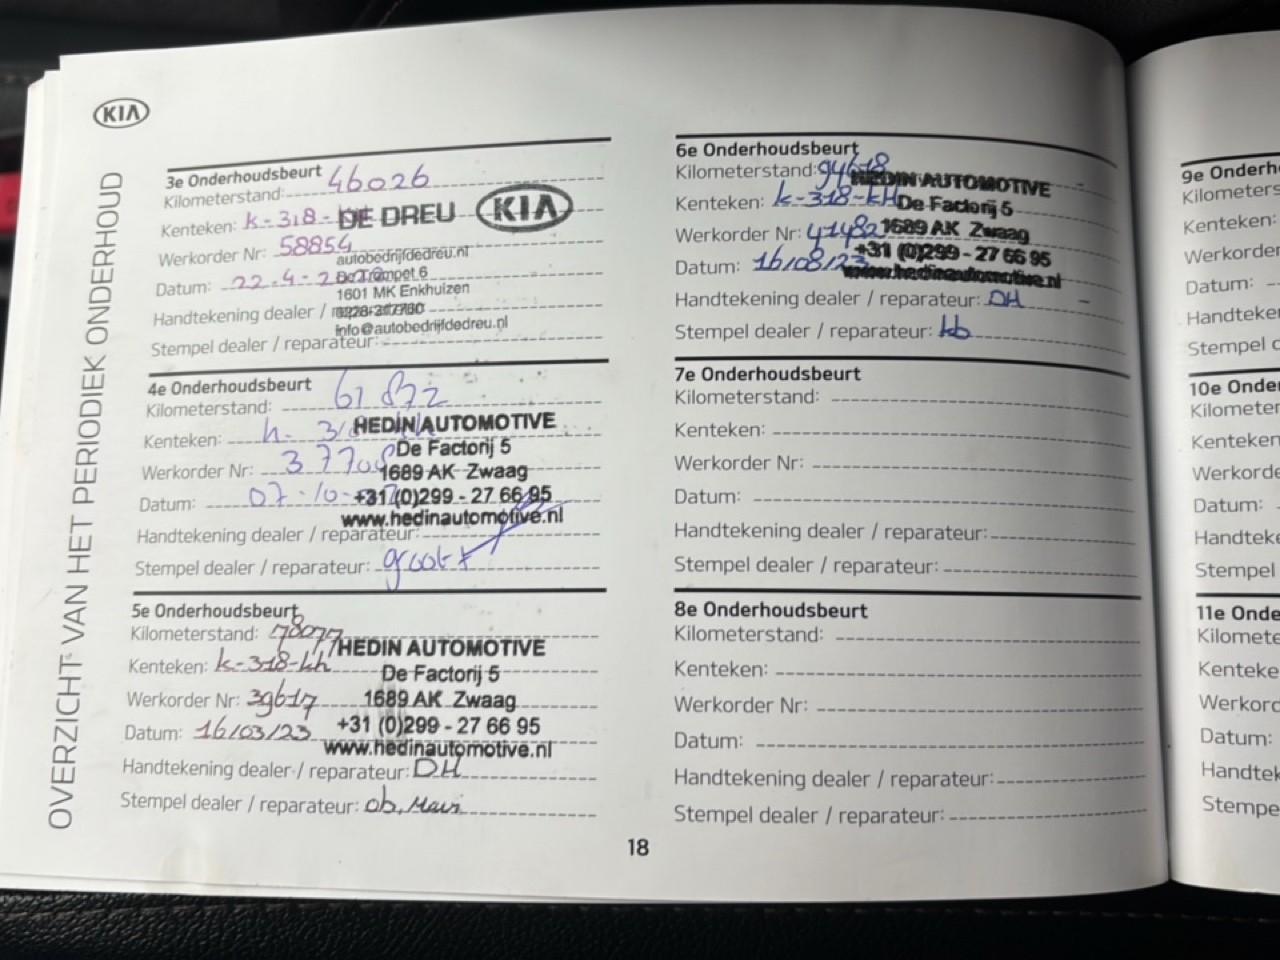 KIA
OVERZICHT VAN HET PERIODIEK ONDERHOUD
3e Onderhoudsbeurt
Kilometerstand: 46026
Kenteken: k-318-
DE DREU KIA
Werkorder Nr: 58854
autobedrijfdedreu.nl
Datum: 22-4-
De Trompet 6
1601 MK Enkhuizen
Handtekening dealer /
info@autobedrijfdedreu.nl
Stempel dealer / reparateur:
4e Onderhoudsbeurt
Kilometerstand: 61872
HEDIN AUTOMOTIVE
Kenteken:
De Factorij 5
Werkorder Nr: 37708
1689 AK Zwaag
Datum: 07-10-
+31 (0)299 - 27 66 95
www.hedinautomotive.nl
Handtekening dealer / reparateur:
Stempel dealer / reparateur: groot
5e Onderhoudsbeurt
Kilometerstand: 78077
HEDIN AUTOMOTIVE
Kenteken: k-318-kh
De Factorij 5
Werkorder Nr: 39617
1689 AK Zwaag
Datum: 16/03/23
+31 (0)299 - 27 66 95
www.hedinautomotive.nl
Handtekening dealer / reparateur: DH
Stempel dealer / reparateur: ob,
6e Onderhoudsbeurt
Kilometerstand: 94618
HEDIN AUTOMOTIVE
Kenteken: k-318-kH
De Factorij 5
Werkorder Nr: 41482
1689 AK Zwaag
+31 (0)299 - 27 66 95
Datum: 16/08/23
www.hedinautomotive.nl
Handtekening dealer / reparateur: DH
Stempel dealer / reparateur: kb
7e Onderhoudsbeurt
Kilometerstand:
Kenteken:
Werkorder Nr:
Datum:
Handtekening dealer / reparateur:
Stempel dealer / reparateur:
8e Onderhoudsbeurt
Kilometerstand:
Kenteken:
Werkorder Nr:
Datum:
Handtekening dealer / reparateur:
Stempel dealer / reparateur:
18
9e Onderh
Kilometers
Kenteken:
Werkorder
Datum:
Handteke
Stempel d
10e Onde
Kilometer
Kenteken
Werkorde
Datum:
Handteke
Stempel
11e Onde
Kilomete
Kenteke
Werkord
Datum:
Handtek
Stempe